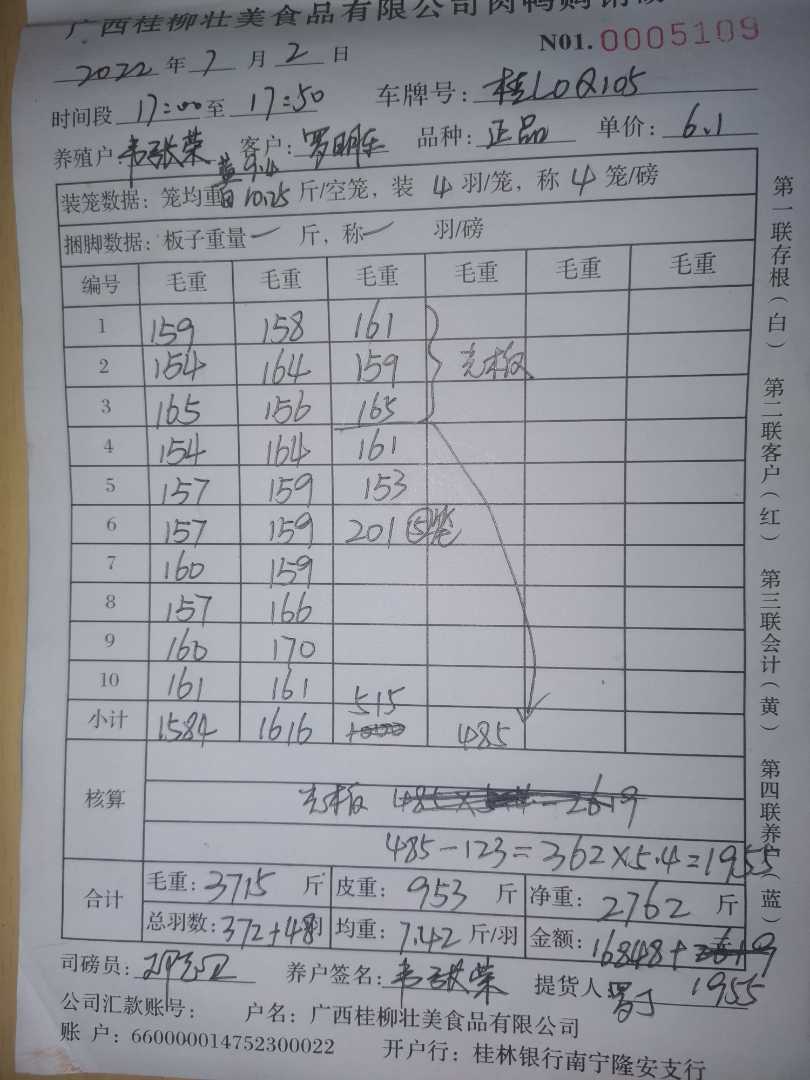 广西桂柳壮美食品有限公司肉鸭购销
N01. 0005109
2022 年 7 月 2 日
时间段 17:00 至 17:50 车牌号: 桂L0Q105
养殖户 韦张荣 客户: 罗明东 品种: 正品 单价: 6.1
黄 9.4
装笼数据: 笼均重 白 10.25 斤/空笼, 装 4 羽/笼, 称 4 笼/磅
捆脚数据: 板子重量 一 斤, 称 一 羽/磅
编号 毛重 毛重 毛重 毛重 毛重 毛重
1 159 158 161
2 154 164 159 克板
3 165 156 165
4 154 164 161
5 157 159 153
6 157 159 201 ⑤笼
7 160 159
8 157 166
9 160 170
10 161 161
小计 1584 1616 515 485
核算 克板
485-123=362×5.4=1955
合计 毛重: 3715 斤 皮重: 953 斤 净重: 2762 斤
总羽数: 372+48羽 均重: 7.42 斤/羽 金额: 16848+
1955
司磅员: 养户签名: 韦张荣 提货人
公司汇款账号: 户名: 广西桂柳壮美食品有限公司
账 户: 660000014752300022 开户行: 桂林银行南宁隆安支行
第一联存根(白) 第二联客户(红) 第三联会计(黄) 第四联养户(蓝)